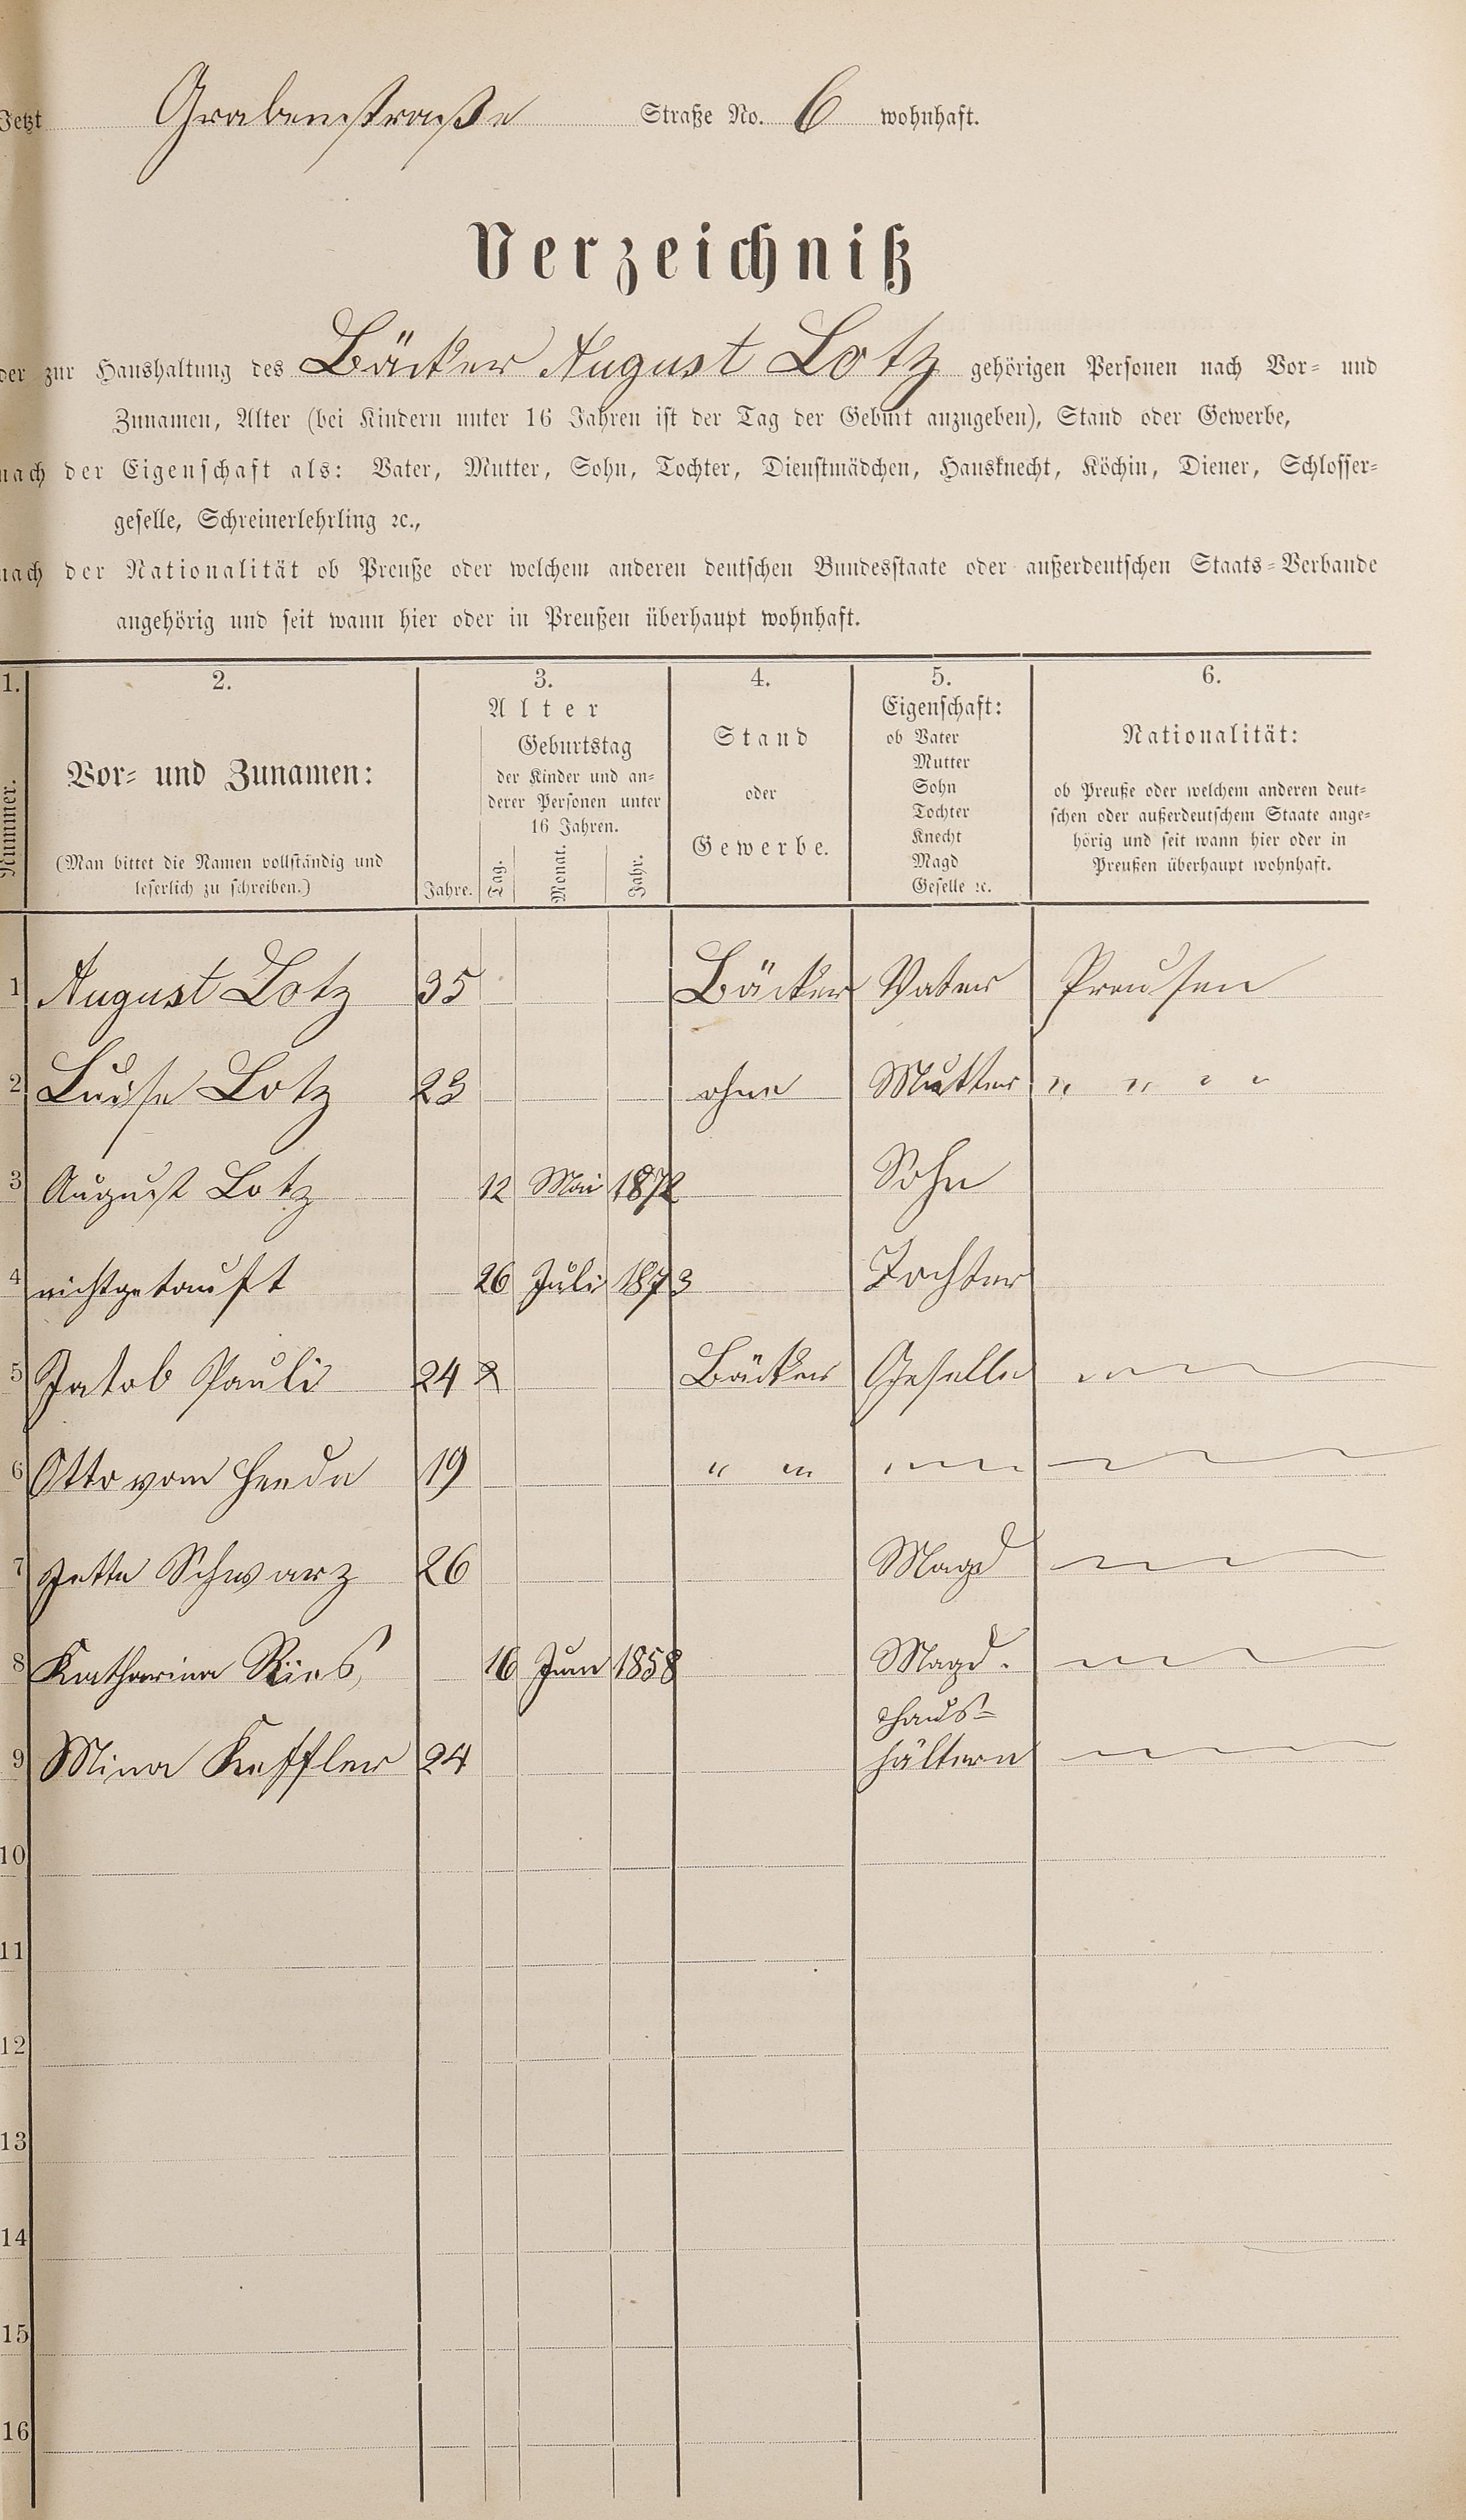 Jetzt Grabenstraße Straße No. 6 wohnhaft.
Verzeichniß
der zur Haushaltung des Bäcker August Lotz gehörigen Personen nach Vor- und
Zunamen, Alter (bei Kindern unter 16 Jahren ist der Tag der Geburt anzugeben), Stand oder Gewerbe,
nach der Eigenschaft als: Vater, Mutter, Sohn, Tochter, Dienstmädchen, Hausknecht, Köchin, Diener, Schlosser-
geselle, Schreinerlehrling ꝛc.,
nach der Nationalität ob Preuße oder welchem anderen deutschen Bundesstaate oder außerdeutschen Staats-Verbande
angehörig und seit wann hier oder in Preußen überhaupt wohnhaft.
1. 2. 3. 4. 5. 6.
Nummer.
Vor- und Zunamen:
(Man bittet die Namen vollständig und
leserlich zu schreiben.)
Alter
Geburtstag
der Kinder und an-
derer Personen unter
16 Jahren.
Jahre. Tag. Monat. Jahr.
Stand
oder
Gewerbe.
Eigenschaft:
ob Vater
Mutter
Sohn
Tochter
Knecht
Magd
Geselle ꝛc.
Nationalität:
ob Preuße oder welchem anderen deut-
schen oder außerdeutschem Staate ange-
hörig und seit wann hier oder in
Preußen überhaupt wohnhaft.
1 August Lotz 35 Bäcker Vater Preusen
2 Luise Lotz 23 ohne Mutter " " " "
3 August Lotz 12 Mai 1872 Sohn
4 nichtgetauft 26 Juli 1873 Tochter
5 Jakob Pauli 24 Bäcker Geselle
6 Otto vom Heede 19 " "
7 Jette Schwarz 26 Magd
8 Katharina Ries 16 Juni 1858 Magd.
Haus-
9 Mina Keffler 24 hältern
10
11
12
13
14
15
16